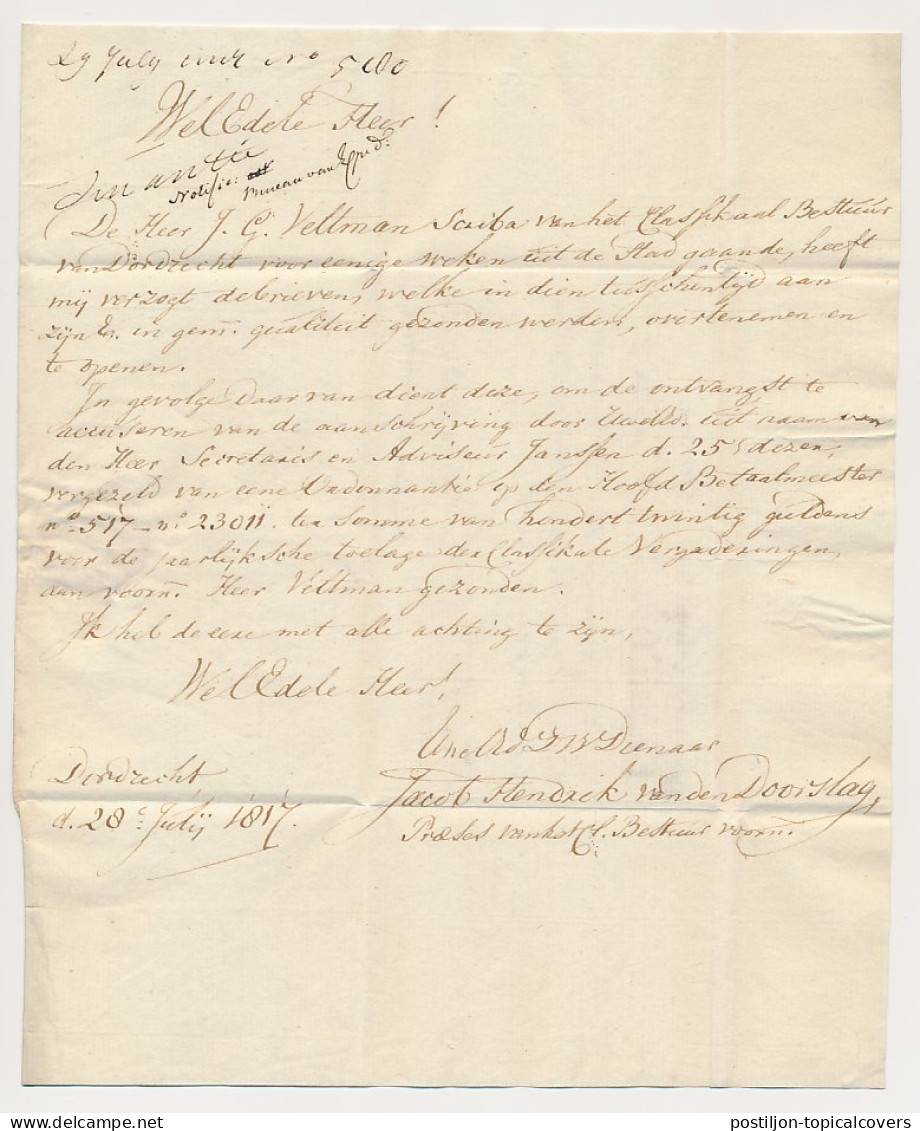 29 July N° 580
WelEdele Heer!
Notific: Bureau van Exped:
De Heer J. G. Veltman Scriba van het Classikaal Bestuur
van Dordrecht voor eenige weken uit de Stad gaande, heeft
mij verzogt de brieven, welke in dien tusschentijd aan
zijn E. in gem. qualiteit gezonden werden, overtenemen en
te openen.
In gevolge daar van dient deze, om de ontvangst te
accuseren van de aanschrijving door UwelEd. uit naam van
den Heer Secretaris en Adviseur Janssen d. 25 dezer,
vergezeld van eene Ordonnantie op den Hoofd Betaalmeester
n° 517 – n° 23011. ter somme van hondert twintig guldens
voor de jaarlijksche toelage der Classikale Vergaderingen,
aan voorn. Heer Veltman gezonden.
Ik heb de eere met alle achting te zijn,
WelEdele Heer!
UwelEd DW Dienaar
Dordrecht
Jacob Hendrik van den Doorslag,
d. 28e Julij 1817.
Præses van het Cl. Bestuur voorn.
postiljon-topicalcovers
postiljon-topicalcovers